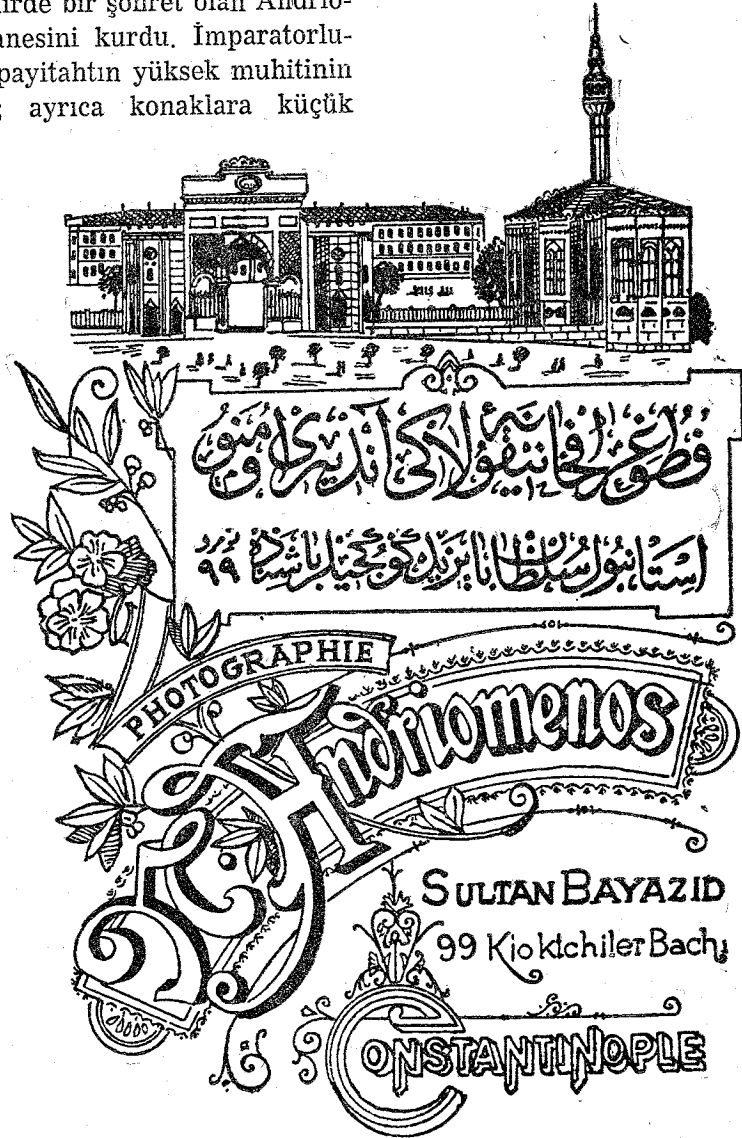 irde bir şöhret olan Andrio-
anesini kurdu. İmparatorlu-
payitahtın yüksek muhitinin
; ayrıca konaklara küçük
فطوغرافخانهٔ نیقولاکی آندریومنو
استانبول سلطان بایزید کوکجیلر باشنده نومرو ٩٩
PHOTOGRAPHIE
Andriomenos
SULTAN BAYAZID
99 Kioktchiler Bachi
CONSTANTINOPLE